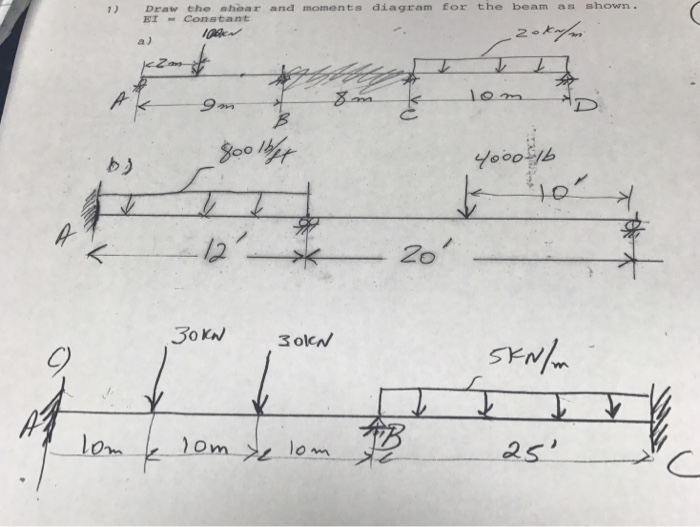 1) Draw the shear and moments diagram for the beam as shown.
EI = Constant
a)
20kN/m
2m
A 9m B 8m C 10m D
b) 800 lb/ft 4000 lb
10'
A 12' 20'
c) 30KN 30KN 5KN/m
A B
10m 10m 10m 25' C